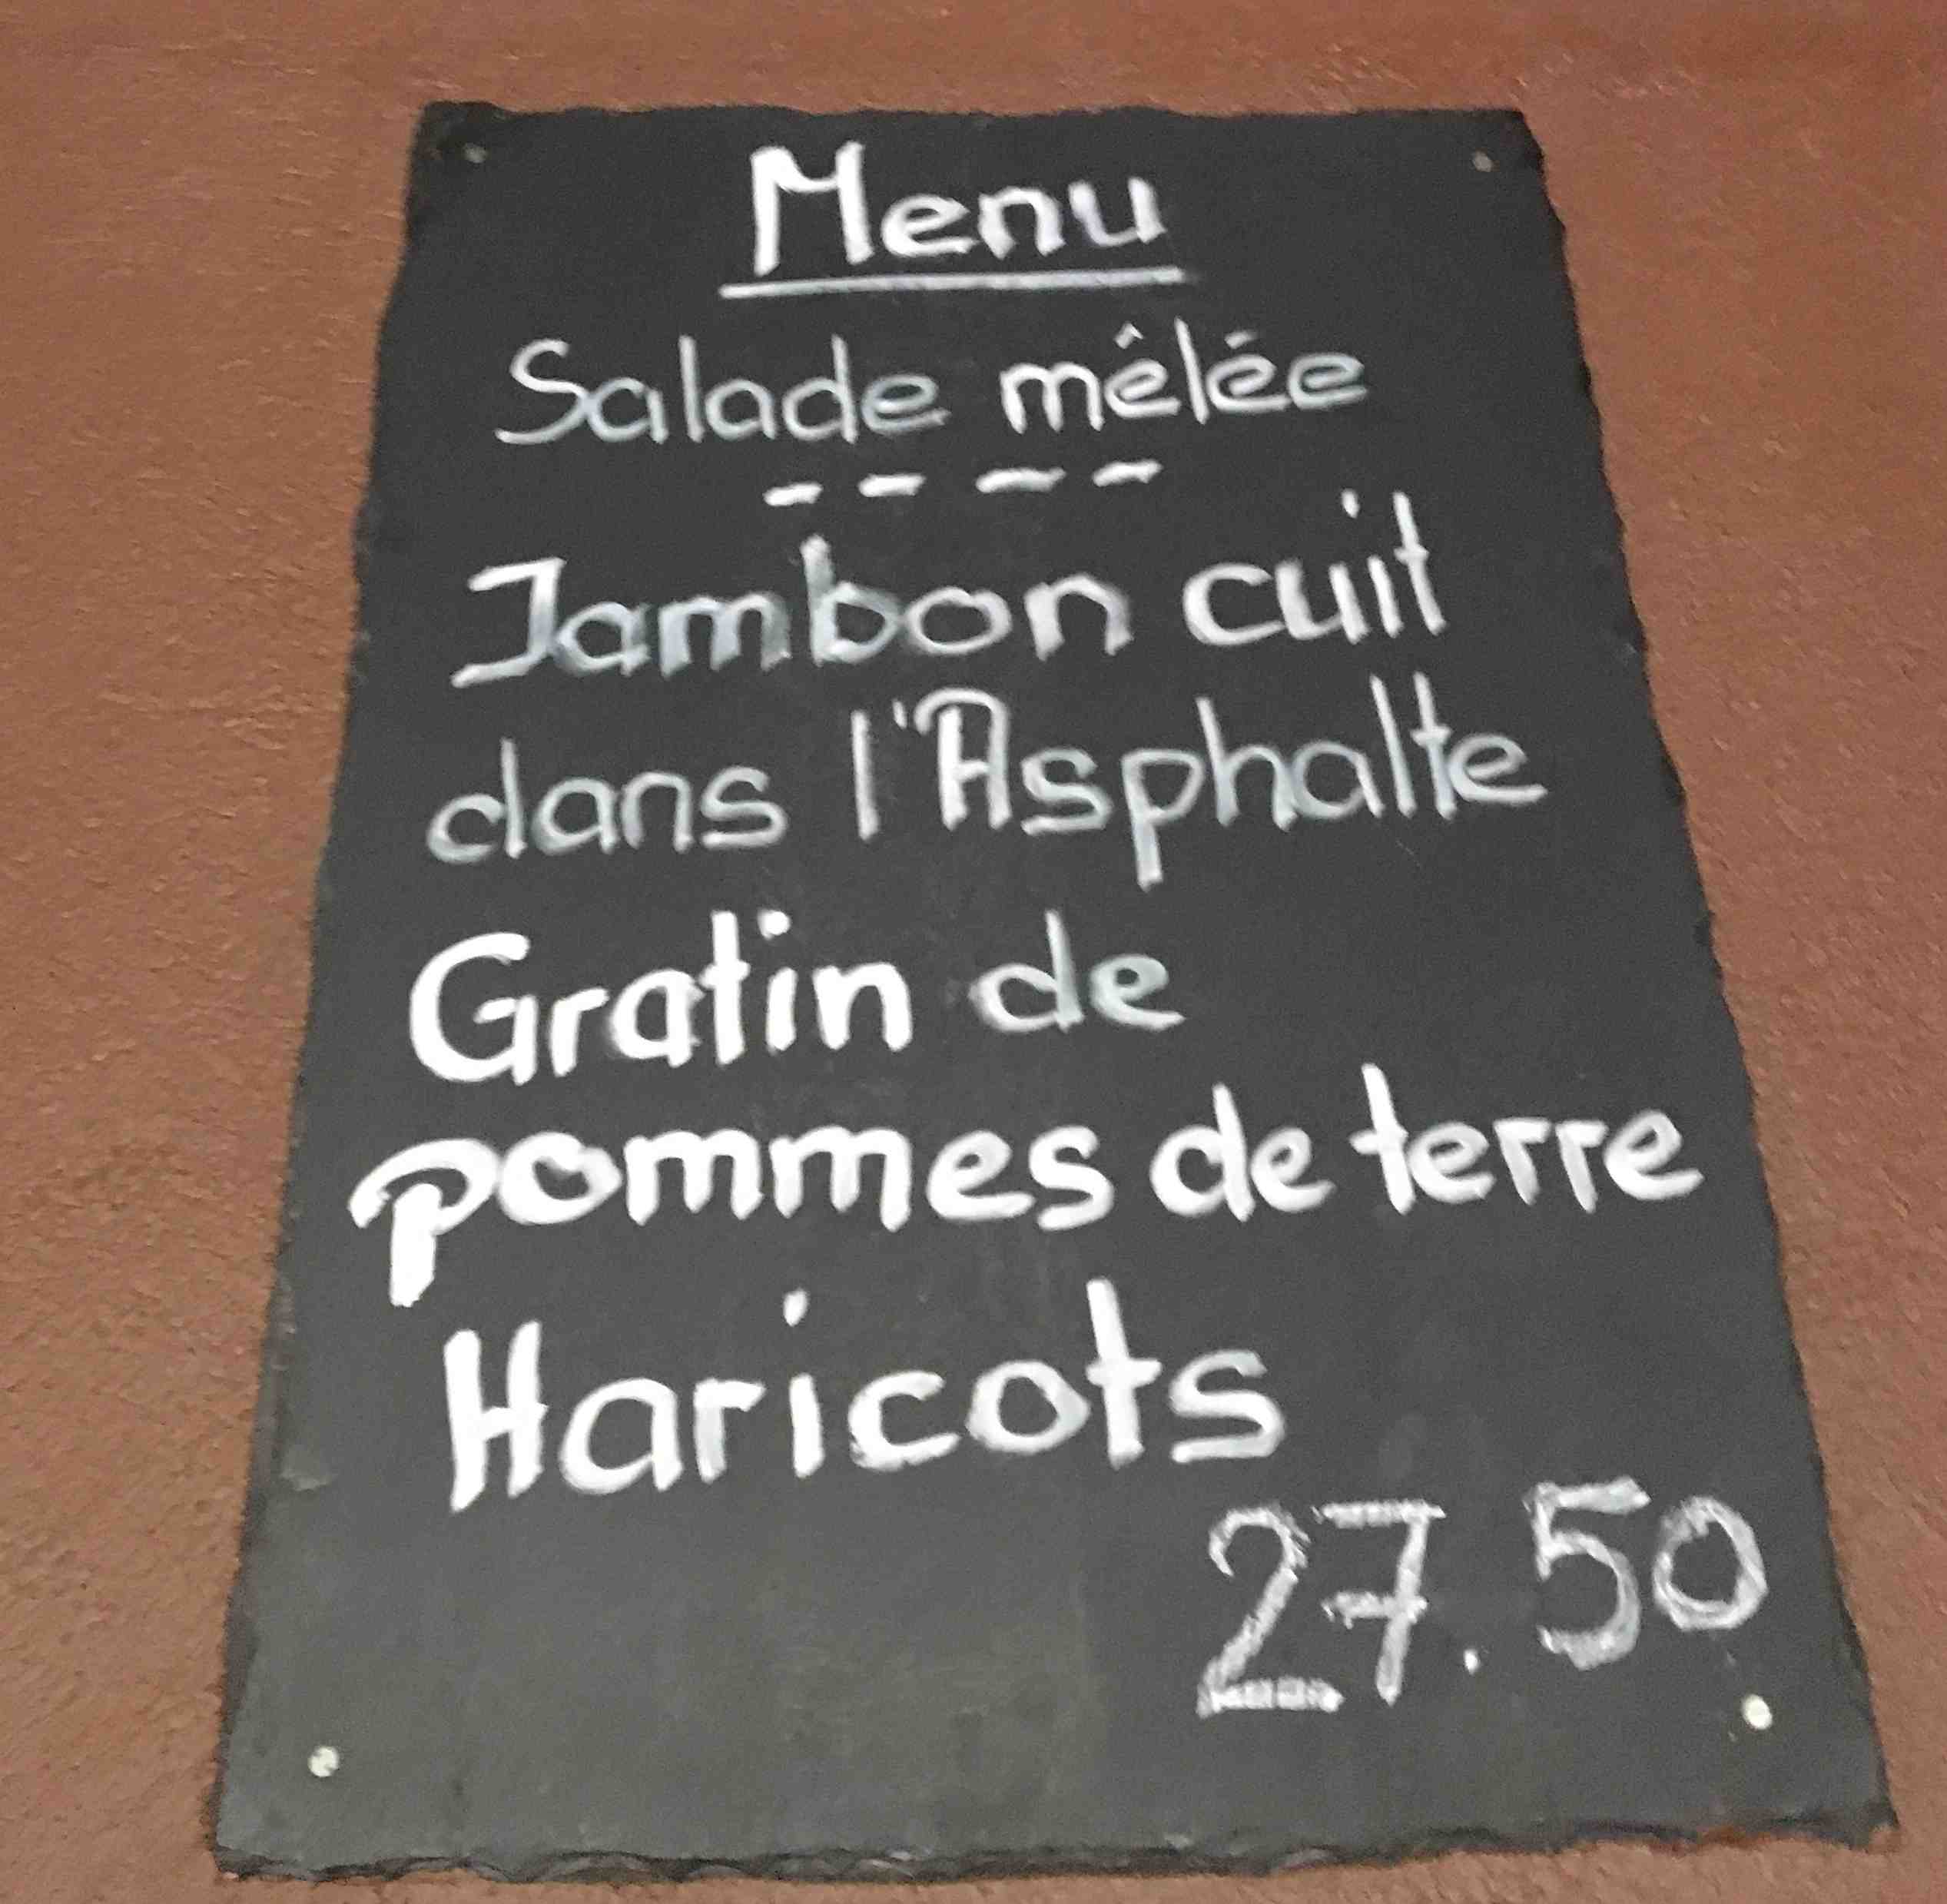 Menu
Salade mêlée
- - - -
Jambon cuit
dans l'Asphalte
Gratin de
pommes de terre
Haricots
27.50